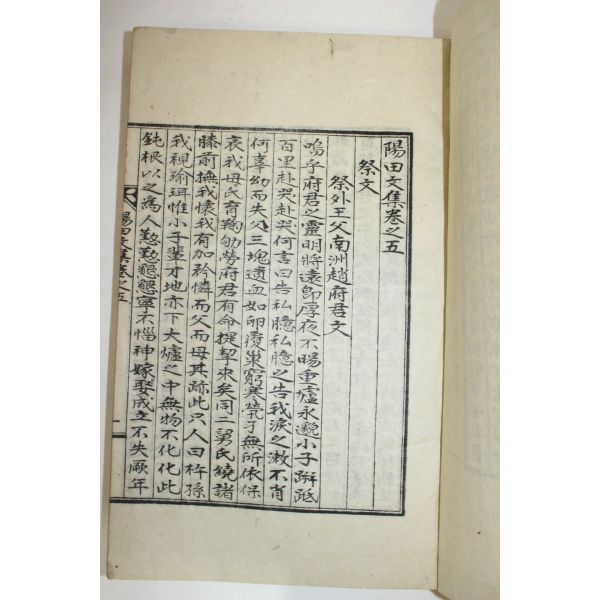 陽田文集卷之五
祭文
祭外王父南洲趙府君文
嗚乎府君之靈明將遠卽厚夜不暘重壚永邈小子跰𨂂
百里赴哭赴哭何言曰告私臆私臆之告我淚之漱不肖
何辜幼而失父三塊遺血如卵覆巢窮寒㷀孑無所依保
哀我母氏育鞠劬勞府君有命提挈來矣同二舅氏繞諸
膝前撫我懷我有加矜憐而父而母其跡此只人曰杵孫
我視瑜珥惟小子輩才地亦下大爐之中無物不化化此
鈍根以之爲人懃懃懇懇寧不惱神嫁娶成立不失厥年
陽田文集卷之五
一